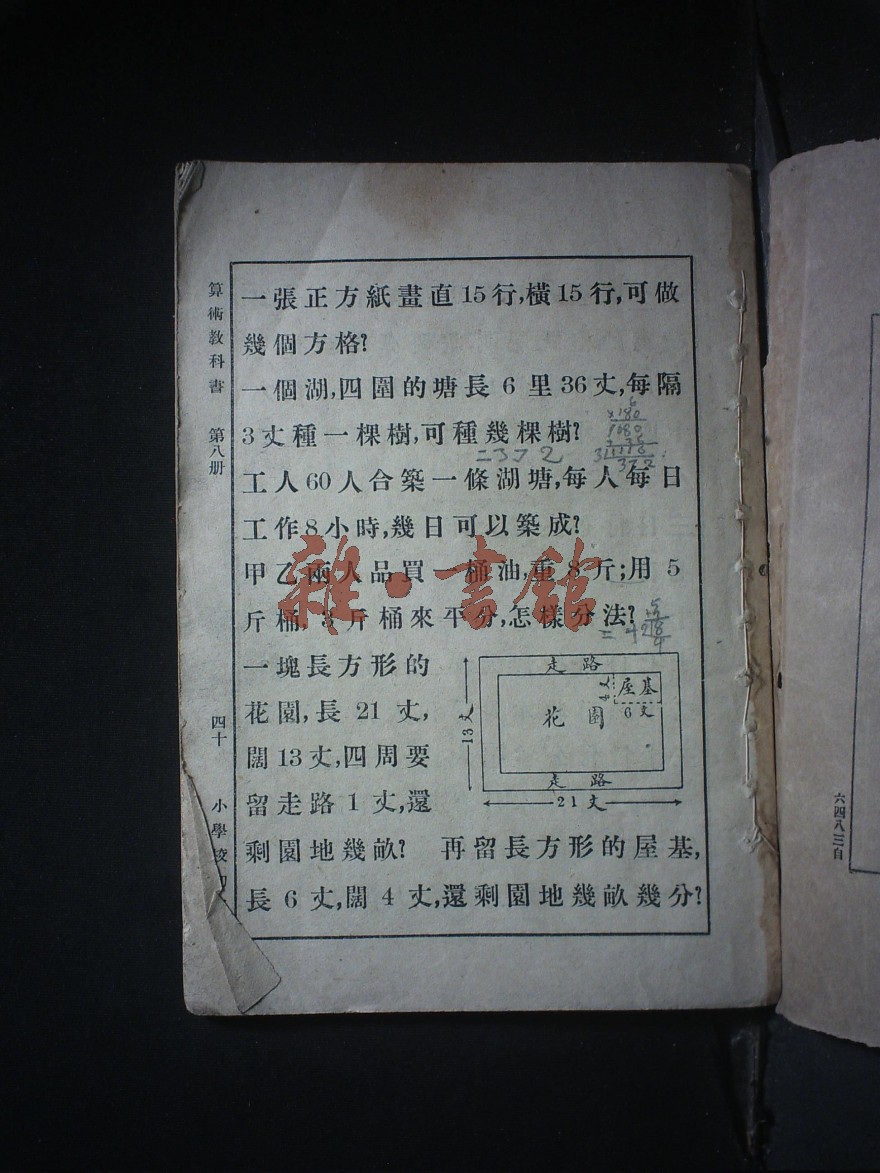 一張正方紙畫直15行,橫15行,可做
幾個方格?
一個湖,四圍的塘長 6 里36丈,每隔
3丈種一棵樹,可種幾棵樹?
=372
工人60人合築一條湖塘,每人每日
工作8小時,幾日可以築成?
甲乙兩人品買一桶油,重8斤;用 5
斤桶, 3 斤桶來平分,怎樣分法?
一塊長方形的
花園,長 21 丈,
闊13丈,四周要
留走路1丈,還
剩園地幾畝? 再留長方形的屋基,
長 6 丈,闊 4 丈,還剩園地幾畝幾分?
走路
4丈
屋基
6丈
花園
13丈
走路
21丈
算術教科書 第八册
四十
小學校
六四八三自
雜·書館